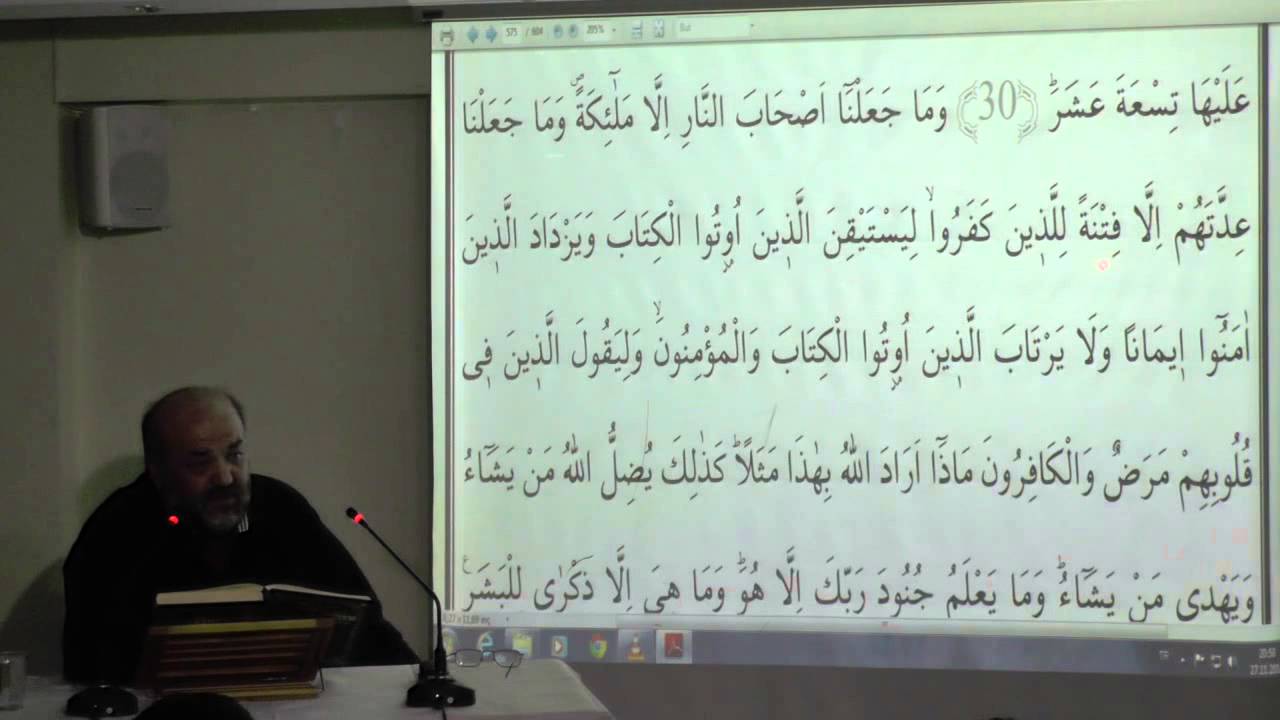 575 / 604 205% Bul
عَلَيْهَا تِسْعَةَ عَشَرَۜ ﴿30﴾ وَمَا جَعَلْنَٓا اَصْحَابَ النَّارِ اِلَّا مَلٰٓئِكَةًۖ وَمَا جَعَلْنَا
عِدَّتَهُمْ اِلَّا فِتْنَةً لِلَّذ۪ينَ كَفَرُواۙ لِيَسْتَيْقِنَ الَّذ۪ينَ اُو۫تُوا الْكِتَابَ وَيَزْدَادَ الَّذ۪ينَ
اٰمَنُٓوا ا۪يمَانًا وَلَا يَرْتَابَ الَّذ۪ينَ اُو۫تُوا الْكِتَابَ وَالْمُؤْمِنُونَۙ وَلِيَقُولَ الَّذ۪ينَ ف۪ى
قُلُوبِهِمْ مَرَضٌ وَالْكَافِرُونَ مَاذَٓا اَرَادَ اللّٰهُ بِهٰذَا مَثَلًاۜ كَذٰلِكَ يُضِلُّ اللّٰهُ مَنْ يَشَٓاءُ
وَيَهْد۪ى مَنْ يَشَٓاءُۜ وَمَا يَعْلَمُ جُنُودَ رَبِّكَ اِلَّا هُوَۜ وَمَا هِىَ اِلَّا ذِكْرٰى لِلْبَشَرِ۟
8,27 x 11,69 inç
TR 20:50